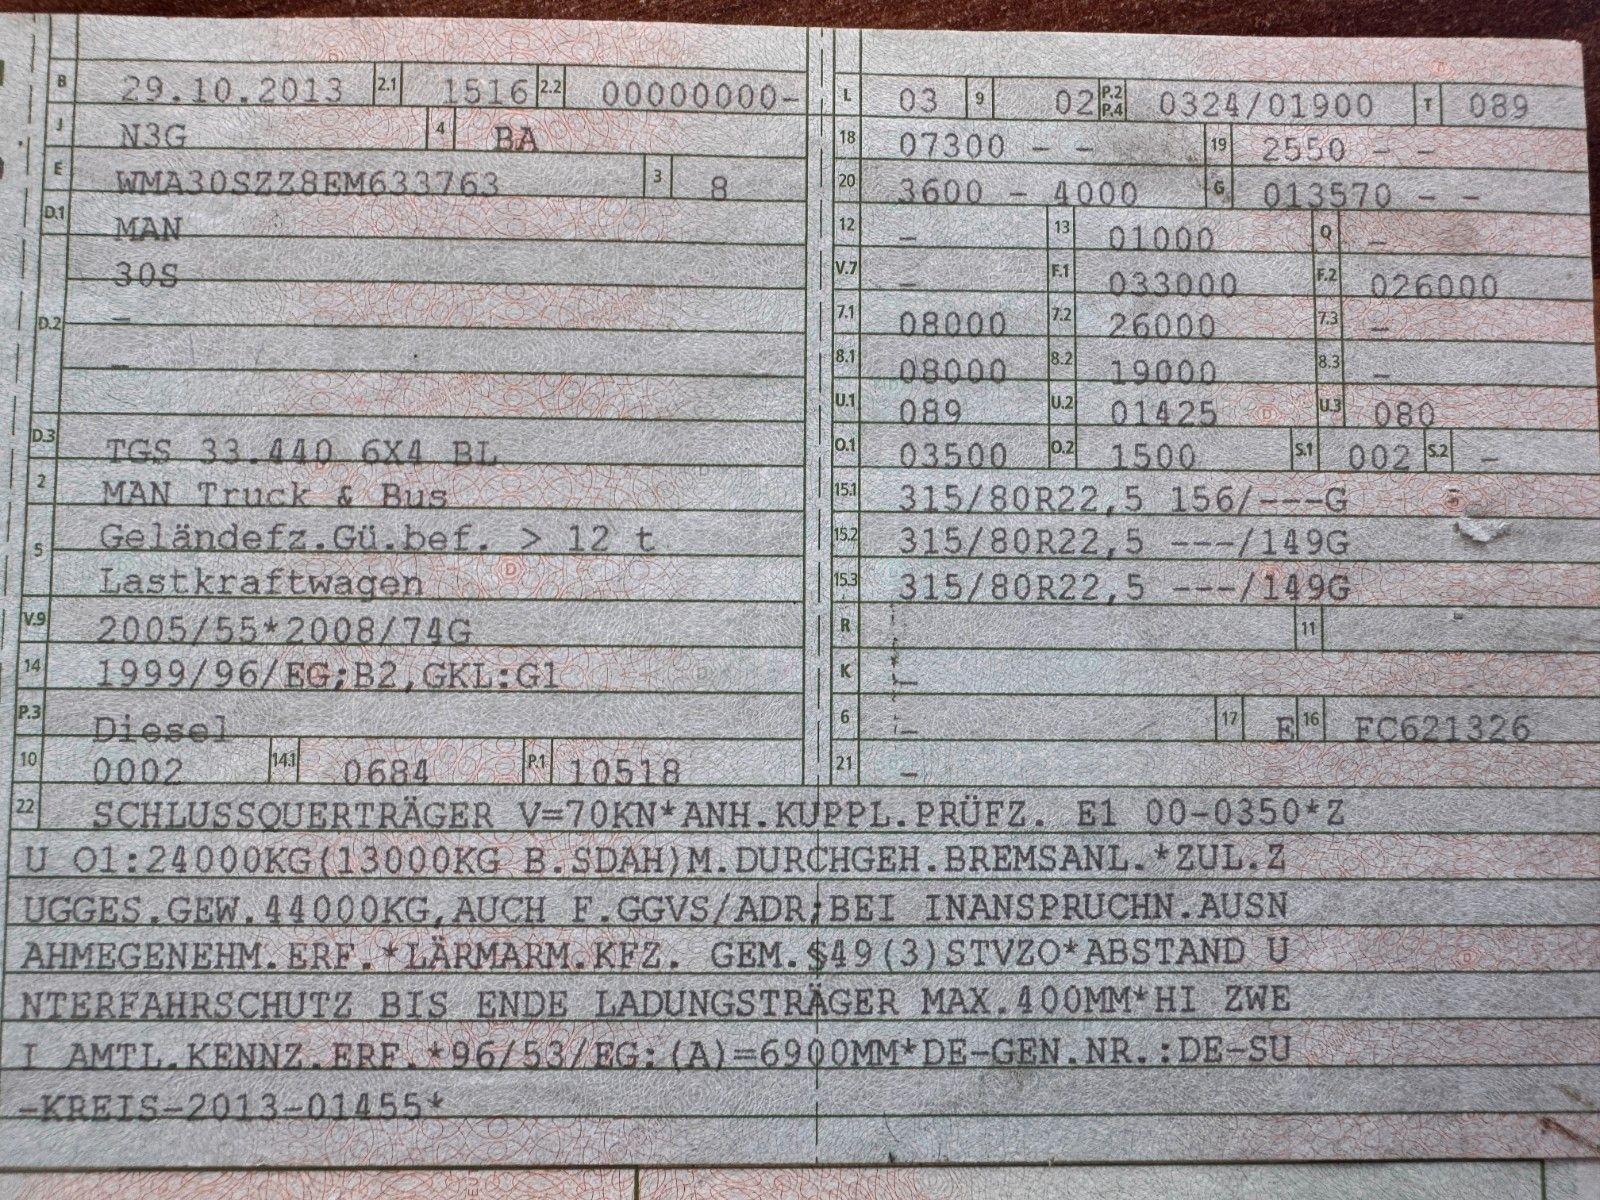 B 29.10.2013 2.1 1516 2.2 00000000-
J N3G 4 BA
E WMA30SZZ8EM633763 3 8
D.1 MAN
30S
D.2 -
-
D.3 TGS 33.440 6X4 BL
2 MAN Truck & Bus
5 Geländefz.Gü.bef. > 12 t
Lastkraftwagen
V.9 2005/55*2008/74G
14 1999/96/EG;B2,GKL:G1
P.3 Diesel
10 0002 14.1 0684 P.1 10518
L 03 9 02 P.2 P.4 0324/01900 T 089
18 07300 - - 19 2550 - -
20 3600 - 4000 G 013570 - -
12 - 13 01000 Q -
V.7 - F.1 033000 F.2 026000
7.1 08000 7.2 26000 7.3 -
8.1 08000 8.2 19000 8.3 -
U.1 089 U.2 01425 U.3 080
O.1 03500 O.2 1500 S.1 002 S.2 -
15.1 315/80R22,5 156/---G
15.2 315/80R22,5 ---/149G
15.3 315/80R22,5 ---/149G
R 11 -
K -
6 - 17 E 16 FC621326
21 -
22 SCHLUSSQUERTRÄGER V=70KN*ANH.KUPPL.PRÜFZ. E1 00-0350*Z
U O1:24000KG(13000KG B.SDAH)M.DURCHGEH.BREMSANL.*ZUL.Z
UGGES.GEW.44000KG,AUCH F.GGVS/ADR;BEI INANSPRUCHN.AUSN
AHMEGENEHM.ERF.*LÄRMARM.KFZ. GEM.§49(3)STVZO*ABSTAND U
NTERFAHRSCHUTZ BIS ENDE LADUNGSTRÄGER MAX.400MM*HI ZWE
I AMTL.KENNZ.ERF.*96/53/EG:(A)=6900MM*DE-GEN.NR.:DE-SU
-KREIS-2013-01455*